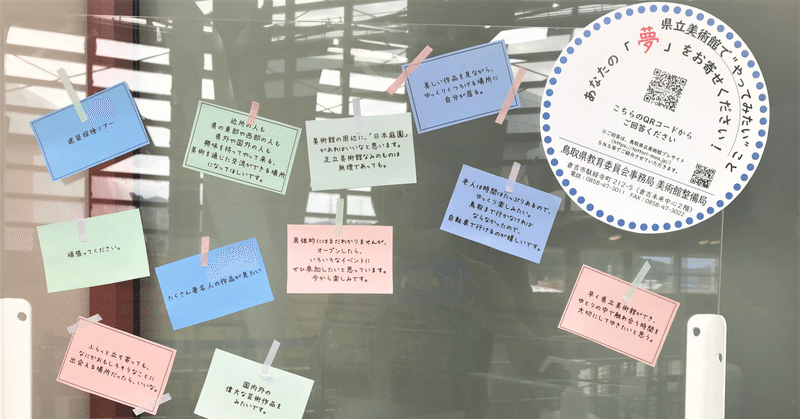 県立美術館で"やってみたい"こと
あなたの「夢」をお寄せください！
こちらのQRコードから
ご回答ください
※ご回答は、鳥取県立美術館プレサイト
SNS等でご紹介させていただきます。
鳥取県教育委員会事務局 美術館整備局
倉吉市駄経寺町212-5（倉吉未来中心2階）
電話：0858-47-3011 FAX：0858-47-3022
建築探検ツアー
近所の人も
県の東部や西部の人も
県外や国外の人も
興味を持ってやって来る、
美術を通じた交流ができる場所
になってほしいです。
美術館の周辺に、「日本庭園」
があればいいなと思います。
足立美術館なみのものは
無理であっても。
美しい作品を見ながら、
ゆっくりくつろげる場所に
自分が居る。
老人は時間はたっぷりあるので、
ゆっくり楽しみたい。
鳥取まで行かなければ
ならなかったので、
自転車で行けるのが嬉しいです。
頑張ってください。
たくさん著名人の作品が見たい
具体的にはまだわかりませんが、
オープンしたら、
いろいろなイベントに
ぜひ参加したいと思っています。
今から楽しみです。
早く県立美術館ができ、
ゆとりの中で触れ合う時間を
大切にしてゆきたいと思う。
ふらっと立ち寄っても、
なにかおもしろそうなことに
出会える場所だったら、いいな。
国内外の
偉大な芸術作品を
みたいです。